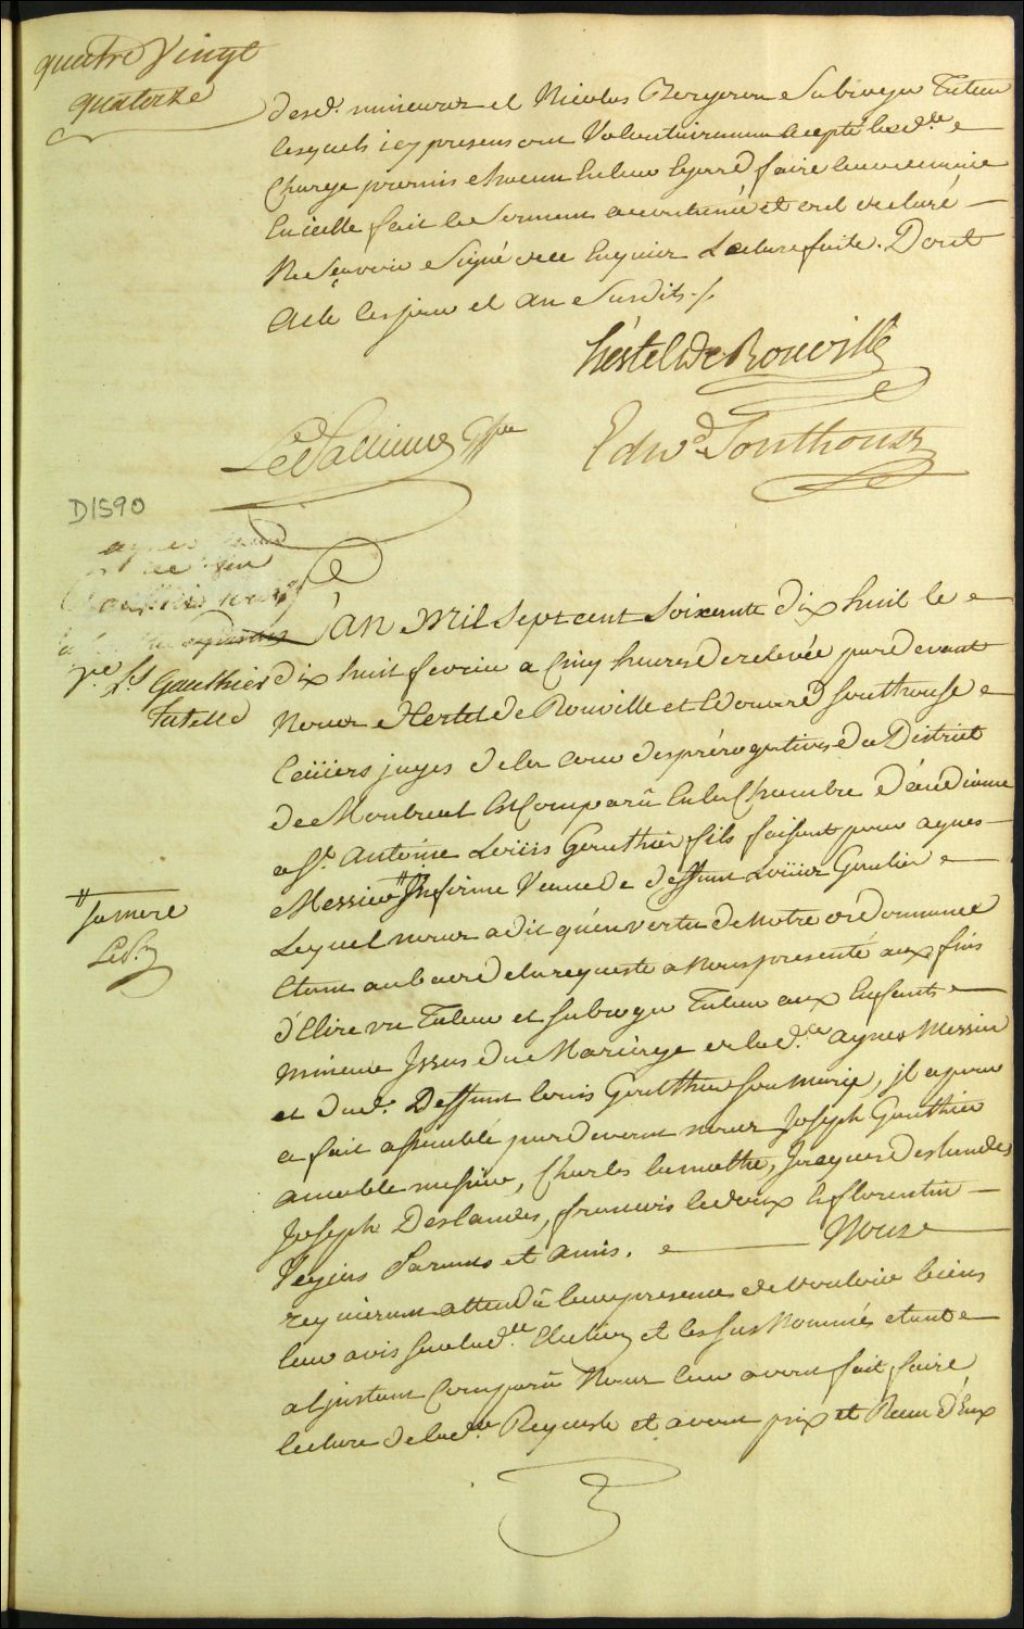 quatre Vingt
quatorze
desd. mineurs et Nicolas Bergeron Subrogé Tuteur
lesquels icy presens ont Volontairement accepté lesd.te
Charge promis chacun En leur Egard faire leur
En icelle fait le Serment accoutumé et ont declaré
Ne Sçavoir Signé de ce Enquier Lecture faite. Dont
Acte les jour et An Susdits ./.
hertel De Rouville
Edwd. Southouse
D1590
Ve. Ls Gauthier
Tutelle
L'AN Mil Sept cent Soixente dix huit le
dix huit fevrier a Cinq heures de relevée pardevant
Nous Hertel De Rouville et Edouard Southouse
Ecüiers juges de la Cour des prérogatives du District
de Montreal Est Comparû En la Chambre d'audiance
Sr. Antoine Loüis Gauthier fils faisant pour agnes
Messier // Infirme Veuve de deffunt Loüis Gautier
// Sa mere
Lequel nous a dit qu'en vertu de Notre ordonnance
Etant au bas de la requeste a Nous presenté aux fins
d'Elire un Tuteur et subrogé Tuteur aux Enfants
mineurs Issus du Mariage de lad.te agnes Messier
et dud. Deffunt louis Gauthier son marie, il a pour
a fait assemblé pardevant nous Joseph Gauthier
amable messier, Charles lamothe, Jacques Deslandes
Joseph Deslandes, francois ledoux florentin
Veyins Parents et Amis. Nous
requierant attendû leur presence de Vouloir
leur avis sur lad.te Election et les sus Nommés etant
a l'jnstant Comparû Nous leur avons fait faire
lecture de lad.te Requeste et avons pris et Recu d'Eux